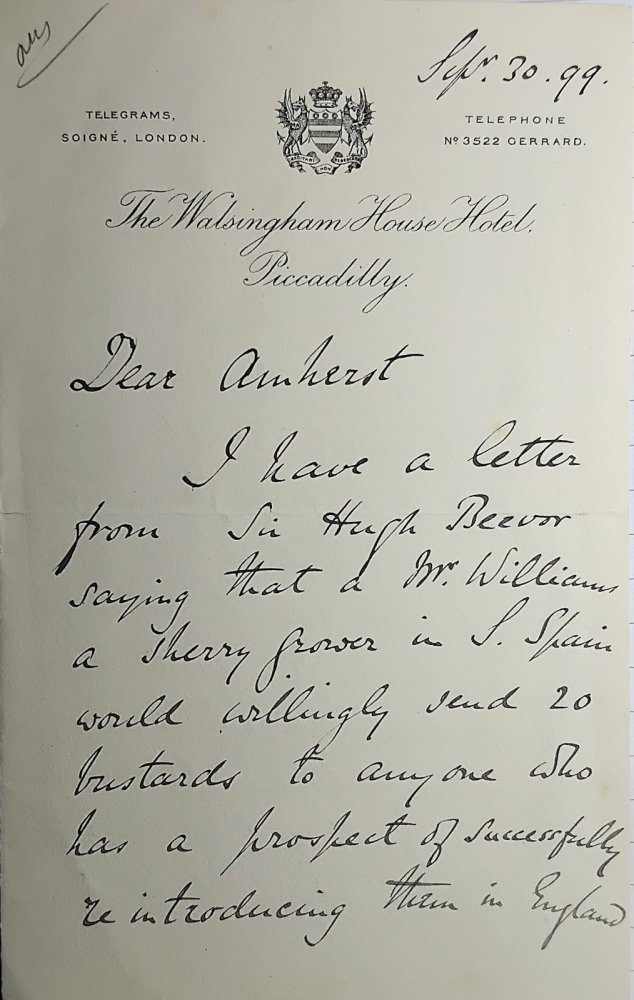 ans
Sepr. 30. 99.
TELEGRAMS,
SOIGNÉ, LONDON.
TELEPHONE
No 3522 GERRARD.
The Walsingham House Hotel,
Piccadilly.
Dear Amherst
I have a letter
from Sir Hugh Beevor
saying that a Mr. Williams
a sherry grower in S. Spain
would willingly send 20
bustards to anyone who
has a prospect of successfully
re introducing them in England